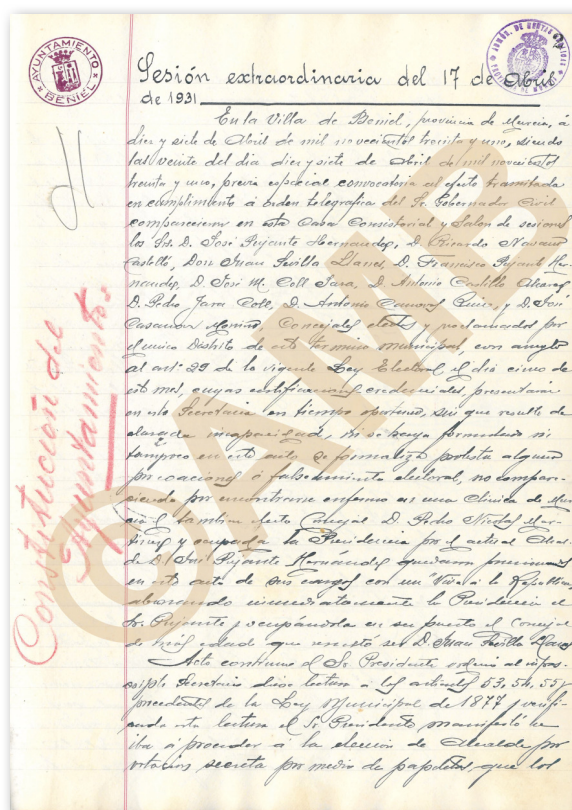 AYUNTAMIENTO
BENIEL
Sesión extraordinaria del 17 de Abril
de 1931
En la Villa de Beniel, provincia de Murcia, á
diez y siete de Abril de mil novecientos treinta y uno, siendo
las veinte del dia diez y siete de Abril de mil novecientos
treinta y uno, previa especial convocatoria al efecto tramitada
en cumplimiento á orden telegrafica del Sr. Gobernador Civil
comparecieron en esta Casa Consistorial y Salon de sesiones
los Srs. D. José Pujante Hernandez, D. Ricardo Navarro
Castelló, Don Juan Sevilla Llanes, D. Francisco Pujante Her-
nandez, D. José M. Coll Jara, D. Antonio Castillo Alvarez
D. Pedro Jara Coll, D. Antonio Canovas Ruiz, y D. José
Casanova Concejales electos y proclamados por
el unico Distrito de este termino municipal con arreglo
al art. 29 de la vigente Ley Electoral el dia cinco de
este mes, cuyas credenciales, presentaron
en esta Secretaria en tiempo oportuno, sin que resulte de
incapacidad, ni se haya formulado ni
tampoco en este acto se formaliza protesta alguna
por ó falseamiento electoral, no compare-
ciendo por encontrarse enfermo en una clinica de Mur-
cia el tambien electo Concejal D. Pedro Nicolas Mar-
tinez y ocupada la Presidencia por el actual Alcal-
de D. José Pujante Hernández quedaron
en este acto de sus cargos con un "Viva á la Republica"
abandonando inmediatamente la Presidencia el
Sr. Pujante y ocupándola en su puesto el Concejal
de más edad que resultó ser D. Juan Sevilla Llanes
Acto continuo el Sr. Presidente ordenó al infras-
cripto Secretario diese lectura á los articulos 53, 54, 55 y
precedentes de la Ley Municipal de 1877 y verifi-
cada esta lectura el Sr. Presidente manifestó se
iba á proceder á la elección de Alcalde por
votacion secreta por medio de papeletas, que los
Constitución del
Ayuntamiento
© AMB